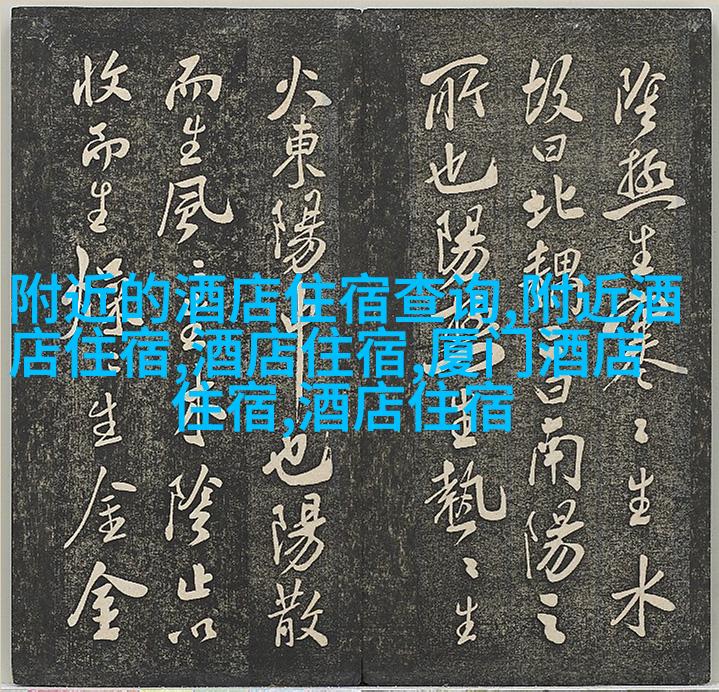 附近的酒店住宿查询,附近酒
店住宿,酒店住宿,厦门酒店
住宿,酒店住宿
陰極生寒〻生水
故曰北曰南陽之
所也陽極生熱〻生
火東陽中也陽散
而生風〻生木陰止以
收而生燥〻生金金